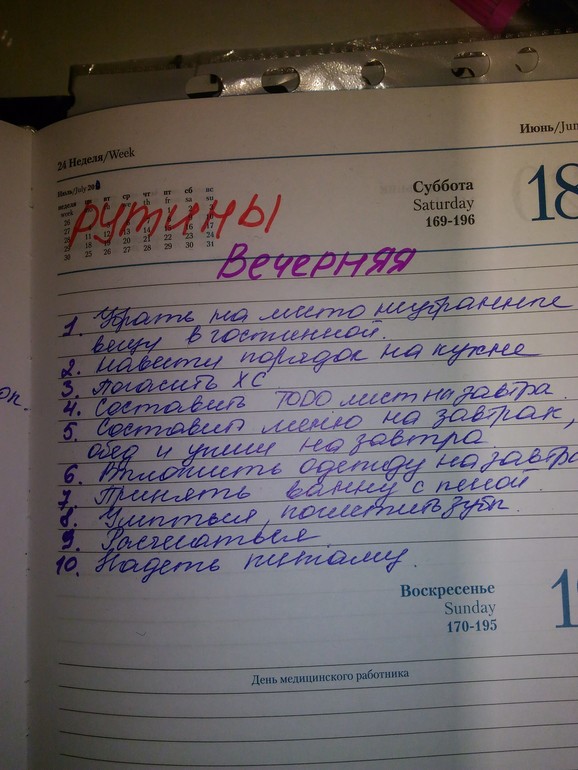 24 Неделя/Week
Июнь/Jun
Июль/July 20
неделя пн вт ср чт пт сб вс
week tu we th fr sa su
26
27
28 11 12 13 14 15 16 17
29 18 19 20 21 22 23 24
30 25 26 27 28 29 30 31
Суббота
Saturday
169-196
18
Рутины
Вечерняя
1. Убрать на место неубранные
вещи в гостинной.
2. Навести порядок на кухне
3. Погасить ХС
4. Составить TODO лист на завтра.
5. Составить меню на завтрак,
обед и ужин на завтра.
6. одежду на завтра
7. Принять ванну с пеной.
8. Умыться, почистить зубы.
9. Расчесаться.
10. Надеть пижаму.
Воскресенье
Sunday
170-195
День медицинского работника